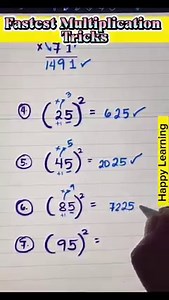 Fastest Multiplication
Tricks
× 7 1
1491 ✓
④. (25)² = 625 ✓
×↗3
+1
⑤. (45)² = 2025 ✓
×↗5
+1
⑥. (85)² = 7225
×↗9
+1
⑦. (95)² =
Happy Learning